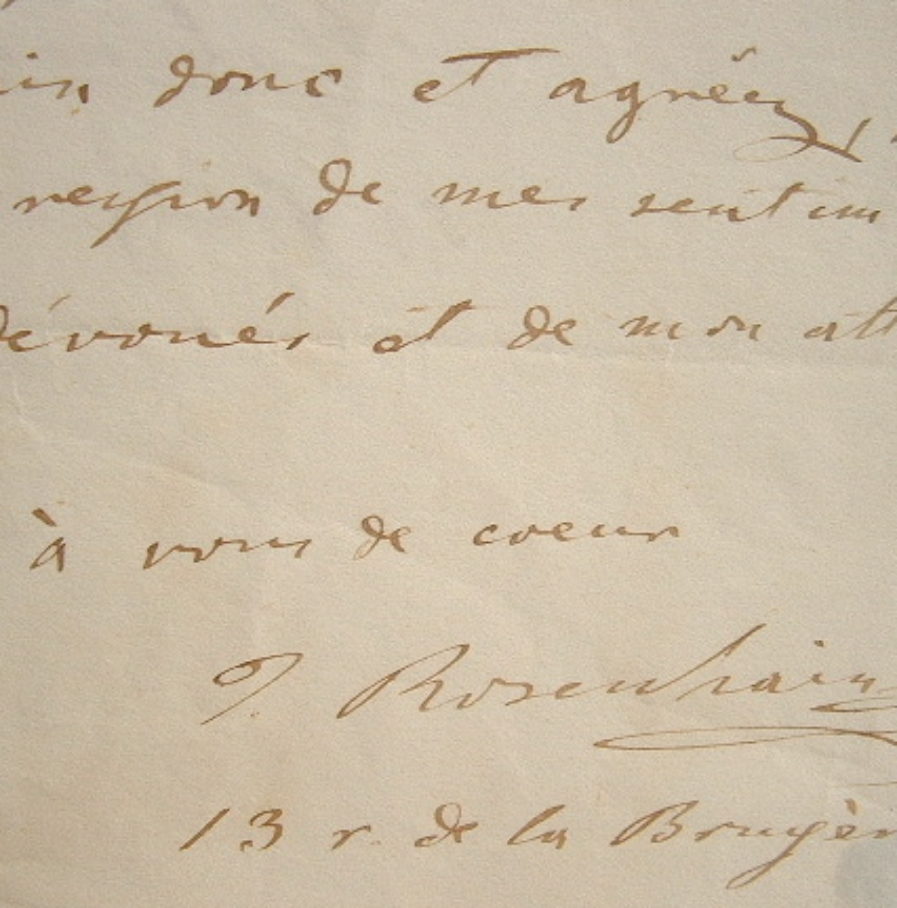 donc et agréez, l'
pression de mes sentim
dévoués et de mon att
à vous de coeur
J. Rosenhain
13 r. de la Bruyèr